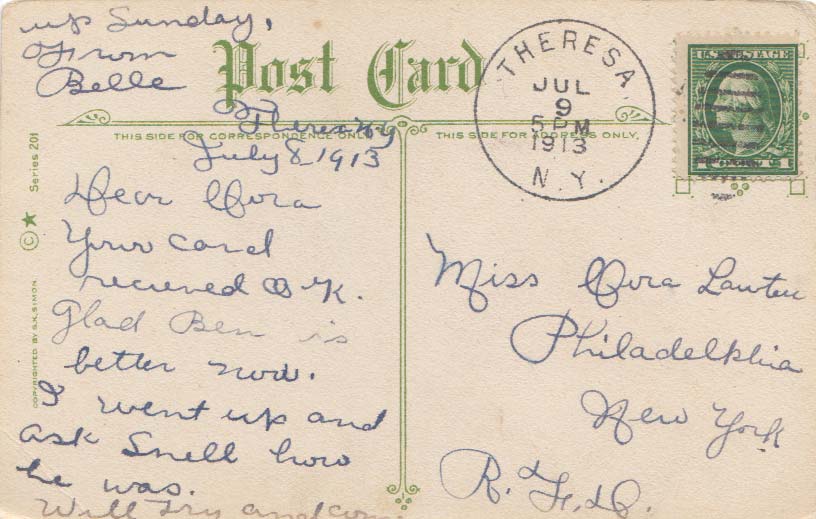 up Sunday,
From
Belle
Post Card
THIS SIDE FOR CORRESPONDENCE ONLY.
THIS SIDE FOR ADDRESS ONLY.
THERESA
JUL
9
5 PM
1913
N.Y.
U.S. POSTAGE
Series 201
COPYRIGHTED BY S.K. SIMON
©
Theresa NY
July 8, 1913
Dear Cora
Your card
recieved O K.
Glad Ben is
better now.
I went up and
ask Snell how
he was.
Will try and com
Miss Cora
Philadelphia
New York
R.F.D.